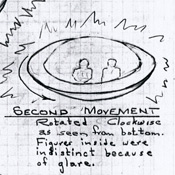 SECOND MOVEMENT
Rotated Clockwise
as seen from bottom.
Figures inside were
indistinct because
of glare.